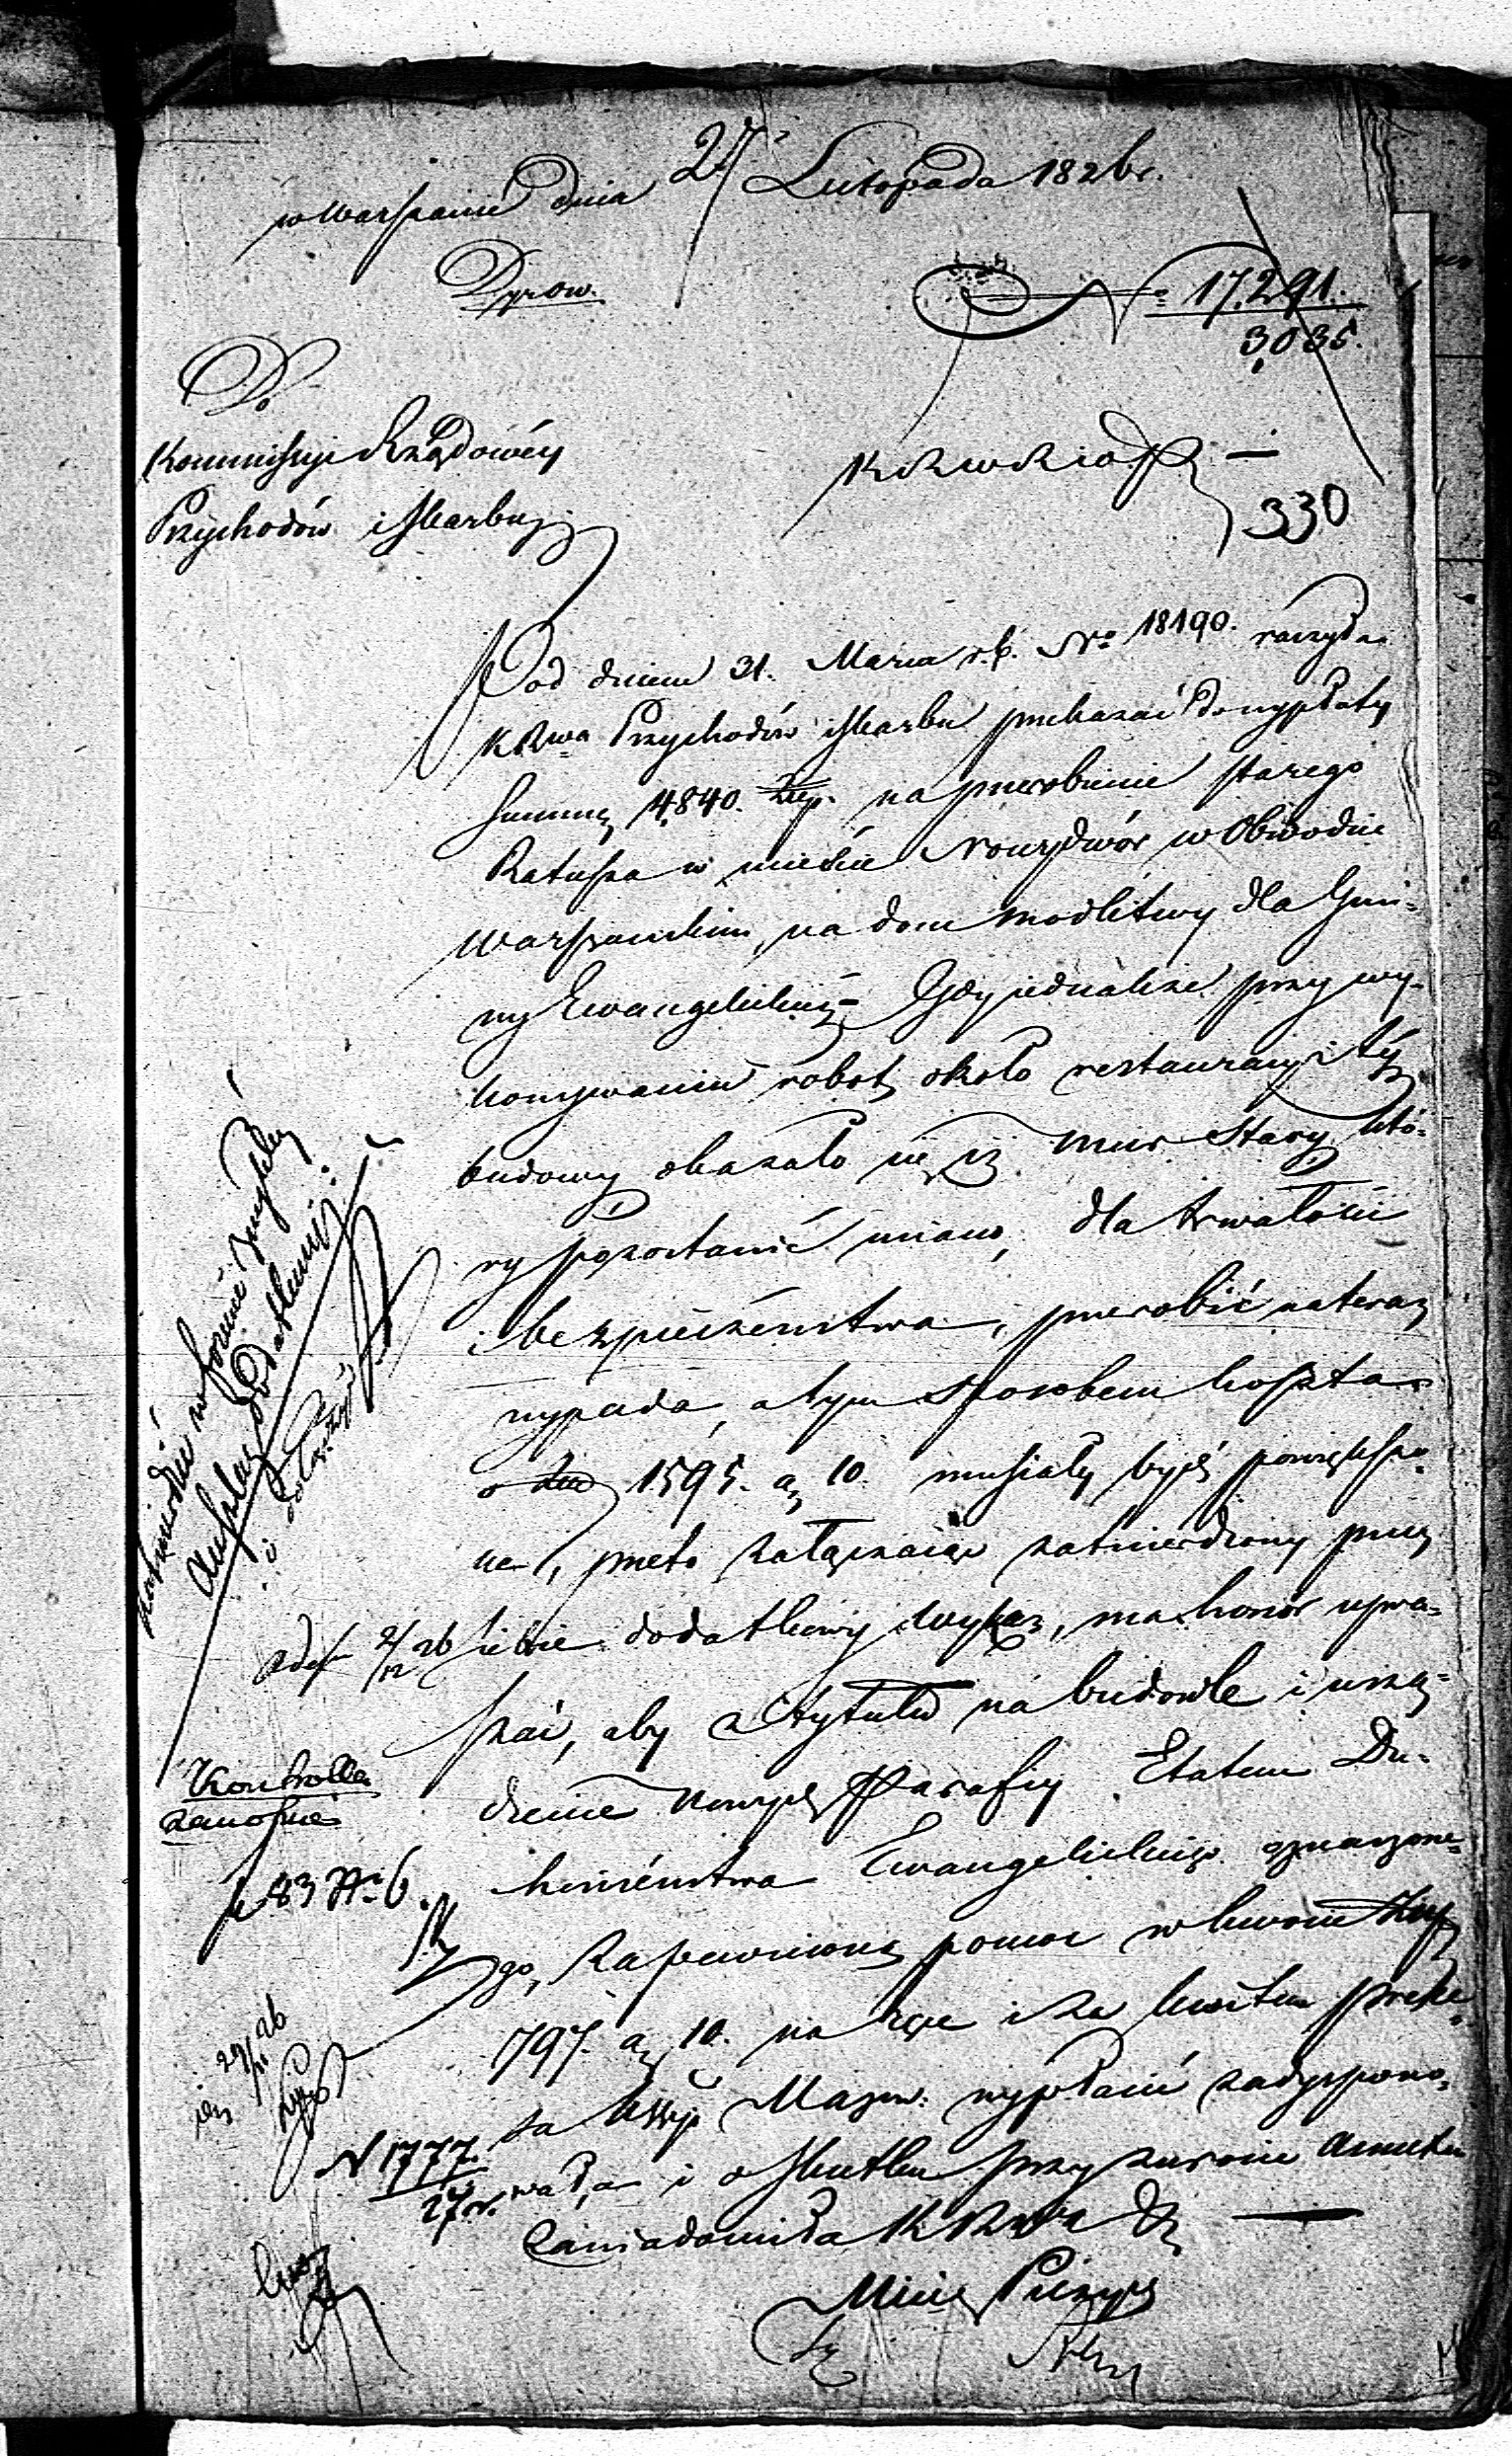 w Warszawie Dnia 27 Listopada 1826 r.
Dyrow.
No 17,291.
3,035.
Do
Kommissyi Rządowéy
Przychodów i Skarbu
330
Pod dniem 31. Marca r. b. No 18190. raczyła
KRwa Przychodów i Skarbu przekazać do wypłaty
Summę 4,840. Złłp. na przerobienie starego
Ratusza w mieście Nowydwór w Obwodzie
Warszawskim, na dom modlitwy dla Gmi-
ny Ewangelickiey. Gdy jednakże przy wy-
konywaniu robot, około restauracyi téy
budowy okazało się, iż mur stary, któ-
ry pozostawić miano, dla trwałości
i bezpieczeństwa, przerobić na teraz
wypada, a tym sposobem koszta
o Złł 1595. g 10. musiały bydź powiększo-
ne, przeto załączaiąc zatwierdzony przez
siebie dodatkowy wykaz, ma honor upra-
szać, aby z tytułu na budowle i urzą-
dzenie nowych Parafiy Etatem Du-
chowieństwa Ewangelickiego oznaczone-
go, zapewnioną pomoc w kwocie Złłp
797. g 10. na ręce i za kwitem Preze-
sa KWy Mazow. wypłacić zadyspono-
wała i o skutku przy zwrocie Anneku
zawiadomiła KRwa
Minis Prezyd
zatwierdzić w formie zwykłey
dołączyć
Kontrolla
zanosnie
f 83 N 6.
29/11 26
N 1777.
27 r.